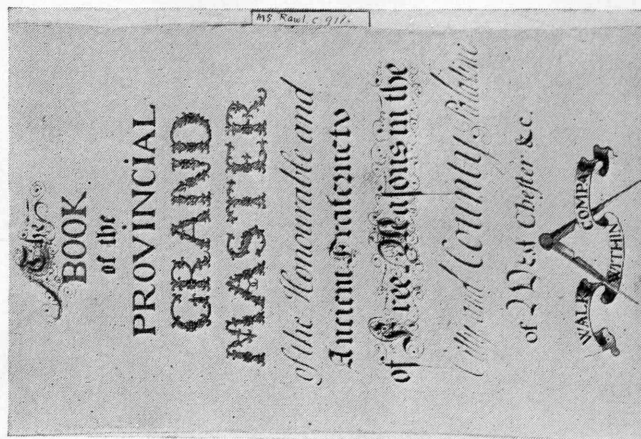 MS. Rawl. C 918.
The
BOOK
of the
PROVINCIAL
GRAND
MASTER
of the Honourable and
Ancient Fraternety
of Free-Masons in the
City and County Palatine
of West Chester &c.
WALK WITHIN COMPA